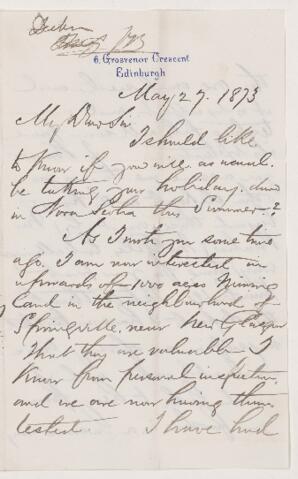 6, Grosvenor Crescent
Edinburgh
May 27. 1873
My Dear Sir
I should like
to know if you will, as usual,
be taking your holiday, down
in Nova Scotia this Summer?
As I wrote you some time
ago, I am now interested in
upwards of 1000 acres Mining
Land in the neighbourhood of
Springville, near New Glasgow
That they are valuable I
Know from personal inspection,
and we are now having them
tested. I have had